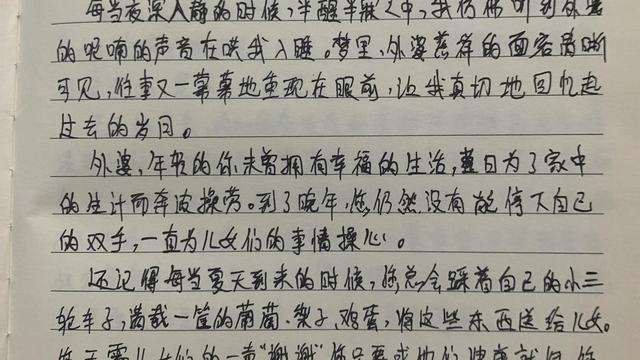 每当夜深人静的时候，半醒半睡之中，我仿佛听到外婆
的呢喃的声音在哄我入睡。梦里，外婆慈祥的面容清晰
可见，往事又一幕幕地重现在眼前，让我真切地回忆起
过去的岁月。
外婆，年轻的你未曾拥有幸福的生活，整日为了家中
的生计而奔波操劳。到了晚年，您仍然没有能停下自己
的双手，一直为儿女们的事情操心。
还记得每当夏天到来的时候，你总会踩着自己的小三
轮车子，满载一筐的葡萄、梨子、鸡蛋，将这些东西送给儿女。
您不需儿女们的一声“谢谢”，你只要求他们健康就好